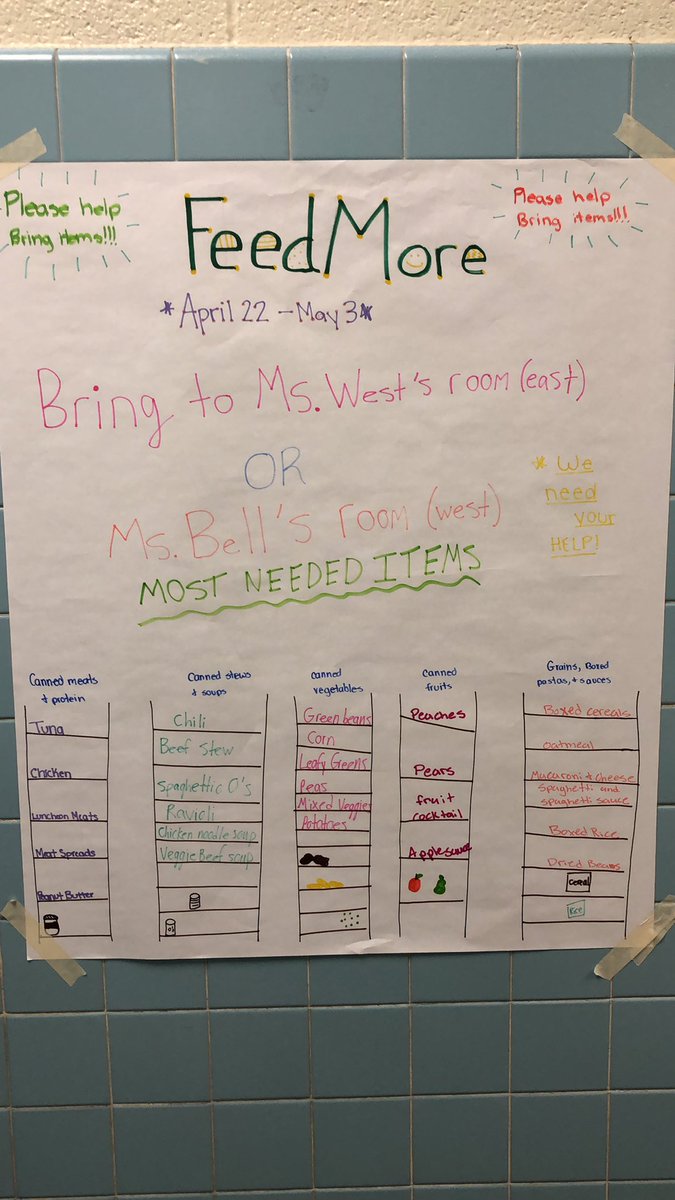 Please help
Bring items!!!
FeedMore
Please help
Bring items!!!
*April 22 - May 3*
Bring to Ms. West's room (east)
OR
Ms. Bell's room (west)
* We
need
your
HELP!
MOST NEEDED ITEMS
Canned meats
+ protein
Tuna
Chicken
Luncheon Meats
Meat Spreads
Peanut Butter
Canned stews
+ soups
Chili
Beef Stew
Spaghettic O's
Ravioli
Chicken noodle soup
Veggie Beef soup
canned
vegetables
Green beans
Corn
Leafy Greens
Peas
Mixed Veggies
Potatoes
Canned
fruits
Peaches
Pears
fruit
cocktail
Applesauce
Grains, Boxed
pastas, + sauces
Boxed cereals
oatmeal
Macaroni + cheese
Spaghetti and
spaghetti sauce
Boxed Rice
Dried Beans
cereal
Rice